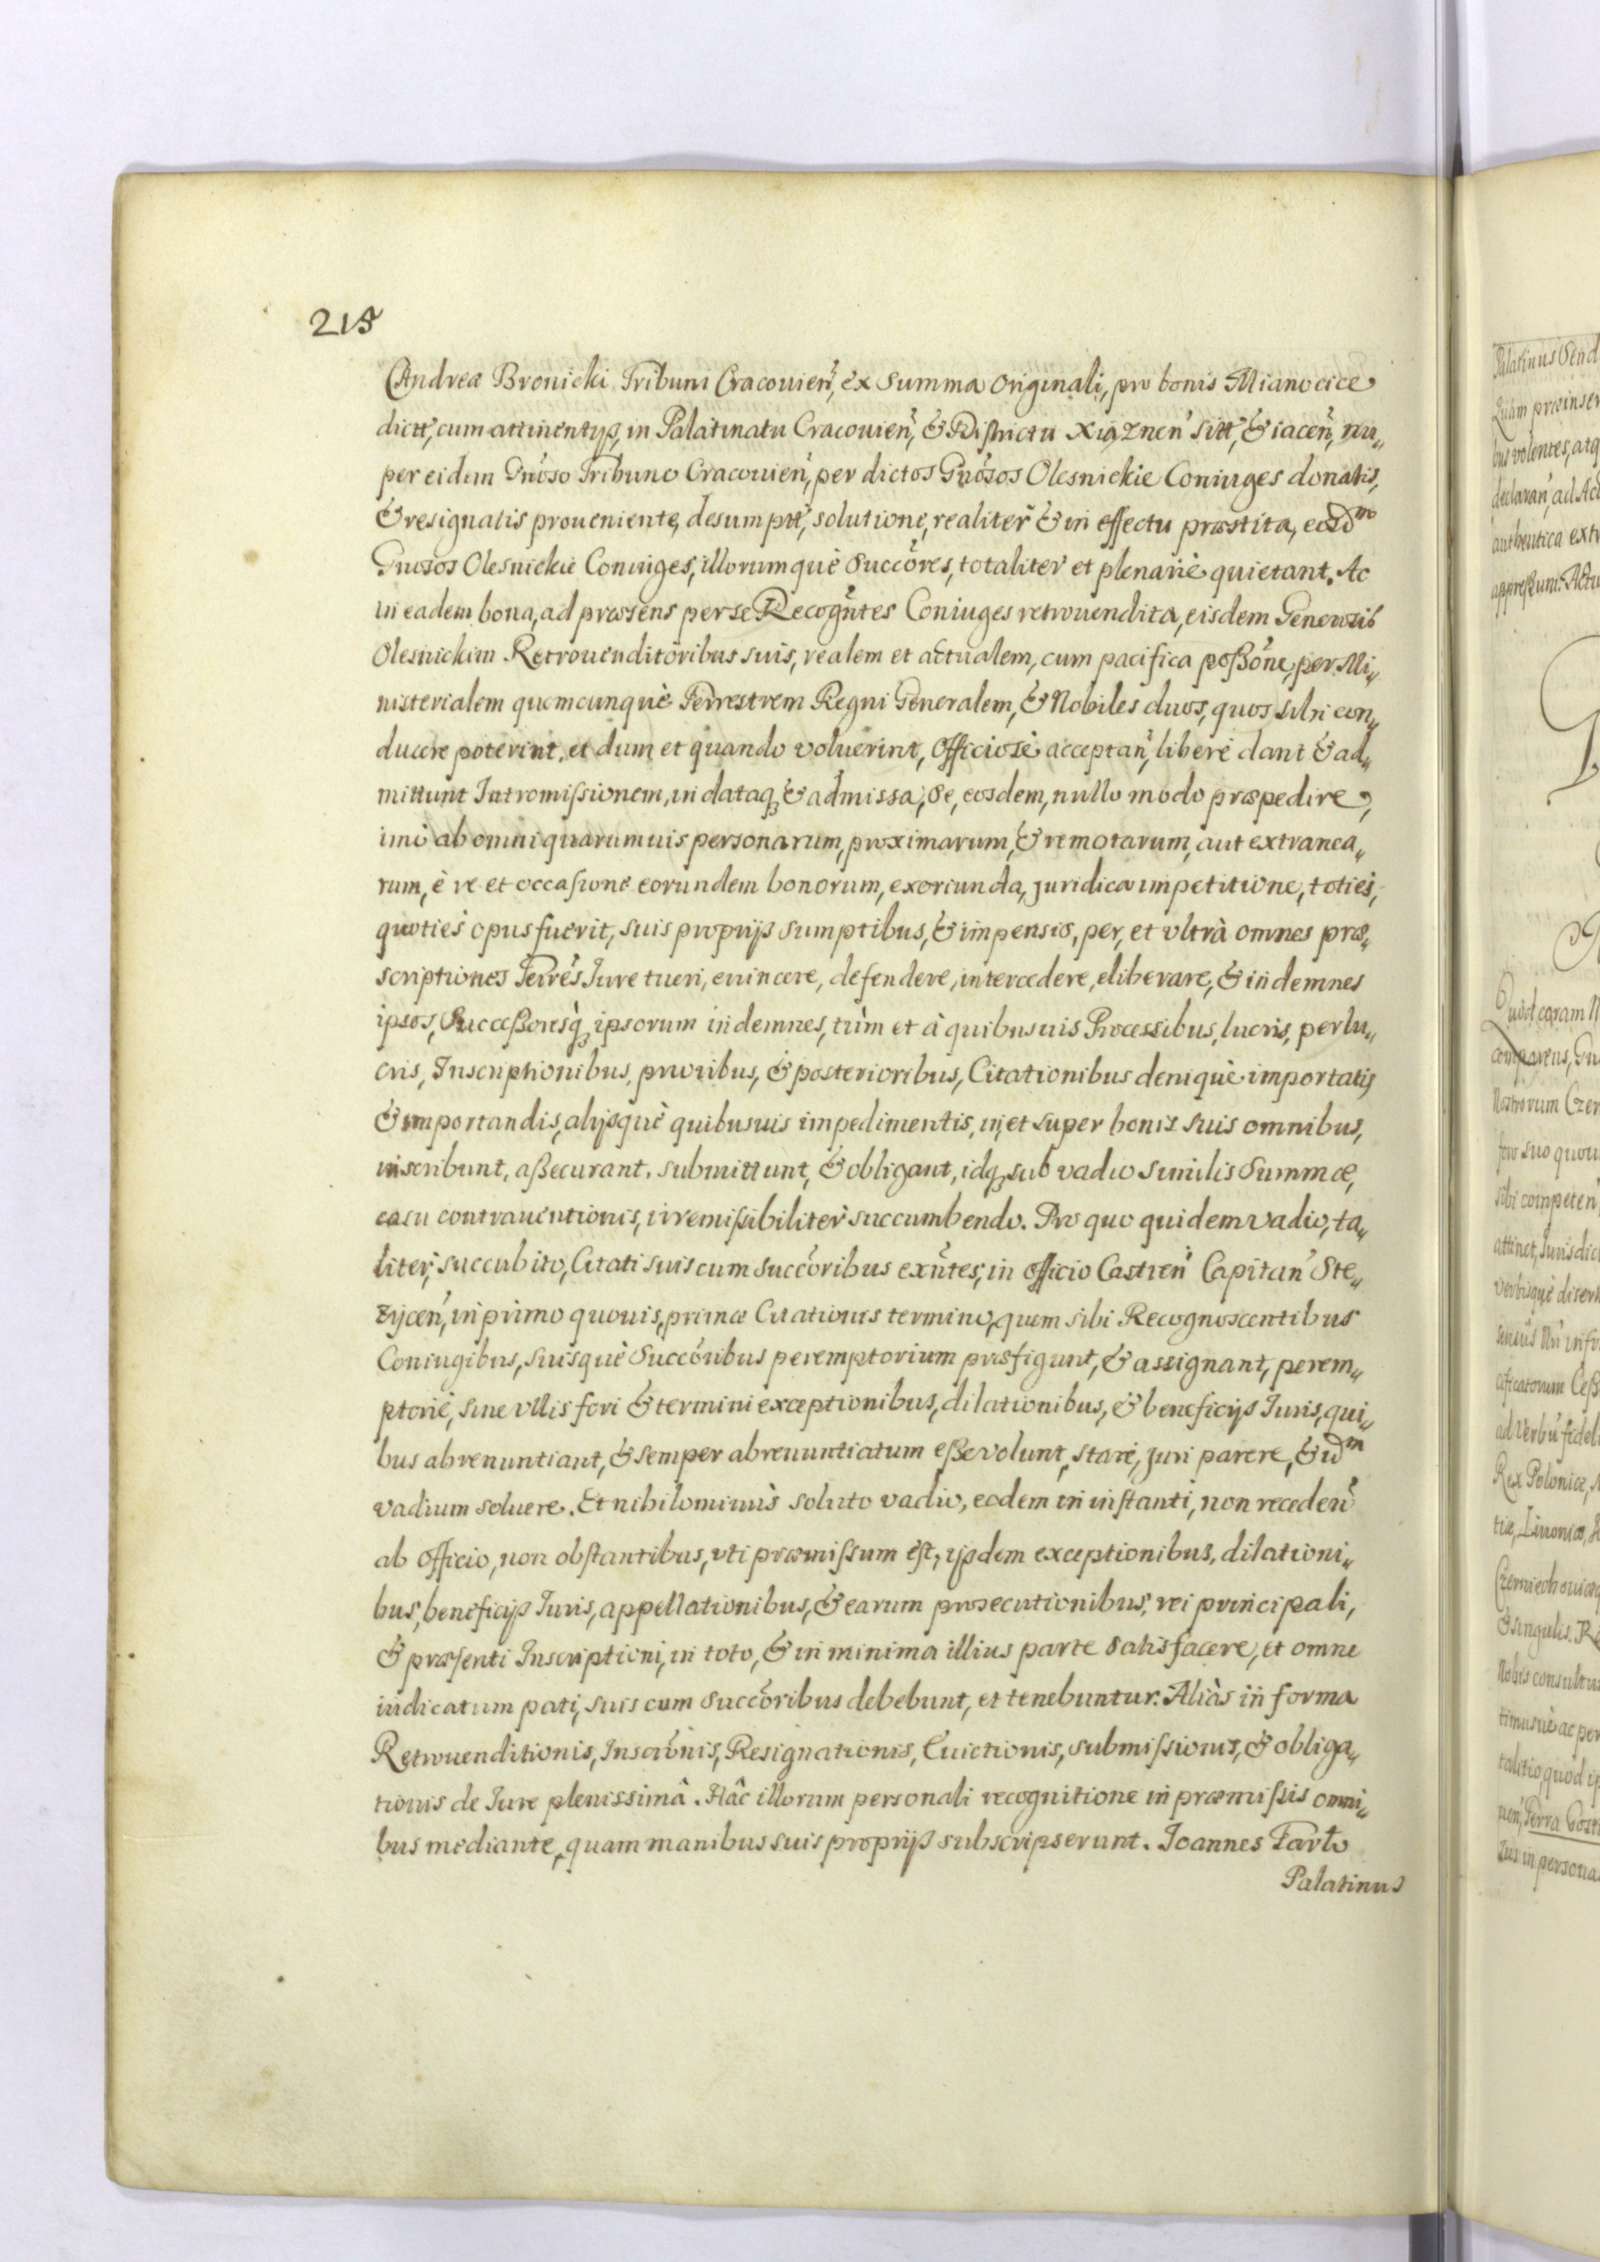 215
Andrea Bronicki Tribuni Cracouien̄, ex summa originali, pro bonis Mianocice
dictt, cum attinentijs, in Palatinatu Cracouien̄, & Districtu Xiąznen̄ sitt, & iacen̄, nu„
per eidem Gnoso Tribuno Cracouien̄, per dictos Gnosos Olesnickie Coniuges donatis,
& resignatis proueniente, desumptt, solutione, realiter & in effectu præstita, eosdm
Gnosos Olesnickie Coniuges, illorumquè Succores, totaliter et plenariè quietant. Ac
in eadem bona, ad præsens per se Recognтes Coniuges retrouendita, eisdem Generosis
Olesnickim Retrouenditoribus suis, realem et actualem, cum pacifica poßone, per Mi„
nisterialem quemcunquè Terrestrem Regni Generalem, & Nobiles duos, quos sibi con„
ducere poterint, et dum et quando voluerint, Officiosè acceptan̄, liberè dant & ad„
mittunt Intromissionem, in dataq; & admissa, Se, eosdem, nullo modo præpedire,
imò ab omni quarumuis personarum, proximarum, & remotarum, aut extranea„
rum, è re et occasione eorundem bonorum, exoriunda, juridica impetitione, totiès,
quotiès opus fuerit, suis proprijs sumptibus, & impensis, per, et vltrà omnes præ„
scriptiones Terrēs Iure tueri, euincere, defendere, intercedere, eliberare, & indemnes
ipsos, Succeßoresq; ipsorum indemnes, tùm et à quibusuis Processibus, lucris, perlu„
cris, Inscriptionibus, prioribus, & posterioribus, Citationibus deniquè importatis
& importandis, alijsquè quibusuis impedimentis, in, et super bonis suis omnibus,
inscribunt, aßecurant, submittunt, & obligant, idq; sub vadio similis Summæ,
casu contrauentionis, irremissibiliter succumbendo. Pro quo quidem vadio, ta„
liter, succubito, Citati suis cum succoribus exn̄tes, in officio Castren̄ Capitan̄ Ste„
zycen̄, in primo quouis, primæ Citationis termino, quem sibi Recognoscentibus
Coniugibus, suisquè Succoribus peremptorium præfigunt, & assignant, perem„
ptoriè, sine vllis fori & termini exceptionibus, dilationibus, & beneficijs Iuris, qui„
bus abrenuntiant, & semper abrenuntiatum eße volunt, stare, juri parere, & idm
vadium soluere. Et nihilominùs soluto vadio, eodem in instanti, non receden̄
ab officio, non obstantibus, vti præmissum est, ijsdem exceptionibus, dilationi„
bus, beneficijs Iuris, appellationibus, & earum prosecutionibus, rei principali,
& præsenti Inscriptioni, in toto, & in minima illius parte satisfacere, et omne
iudicatum pati, suis cum succoribus debebunt, et tenebuntur. Aliàs in forma
Retrouenditionis, Inscrōnis, Resignationis, Euictionis, submissionis, & obliga„
tionis de Iure plenissimâ. Hâc illorum personali recognitione in præmissis omni„
bus mediante, quam manibus suis proprijs subscripserunt. Joannes Tarło
Palatinus